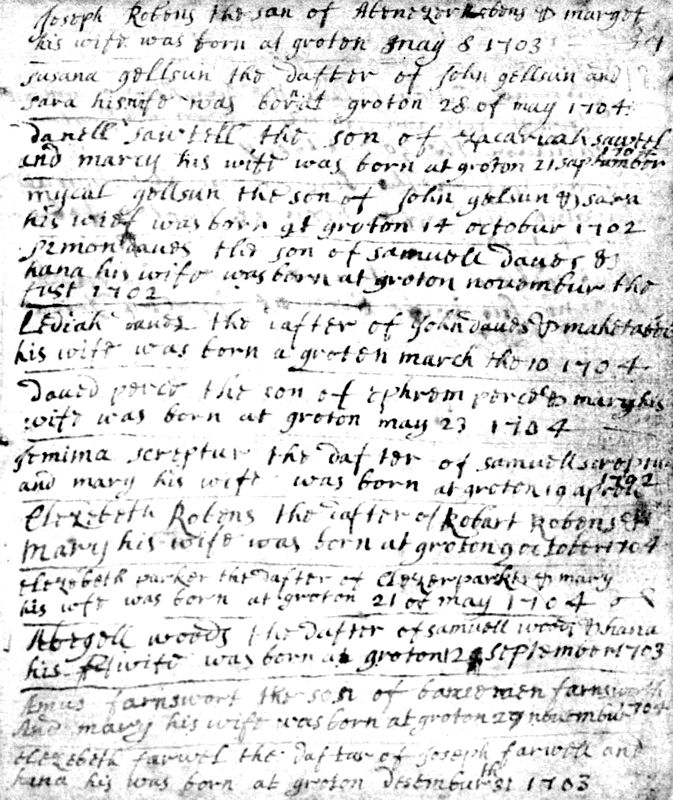 Joseph Robens the son of Abenezer Robens & marget
his wife was born at groton may 8 1703
susana gellsun the dafter of John gellsun and
sara his wife was born at groton 28 of may 1704
danell sawtell the son of zacariah sawtel
and marcy his wife was born at groton 21 saptumber 1704
mycal gellsun the son of John gelsun & sara
his wief was born at groton 14 octobur 1702
simon daves the son of samuell daves &
hana his wife was born at groton novembur the
furst 1702
Lediah daves the dafter of John daves & mahetabel
his wife was born a groten march the 10 1704
daved perce the son of ephrem perce & mary his
wife was born at groton may 23 1704
Jemima screptur the dafter of samuell screptur
and mary his wife was born at groton 19 aprell 1702
Elezebeth Robens the dafter of Robart Robens &
Mary his wife was born at groton 9 october 1704
elezebeth parker the dafter of Elezer parker & mary
his wife was born at groton 21 of may 1704
Abegell woods the dafter of samuell woods & hana
his wife was born at groton 12 september 1703
Amus farnswort the son of farnsworth
And mary his wife was born at groton 27 novembur 1704
elezebeth farwel the daftur of Joseph farwell and
hana his was born at groton desembur th 31 1703